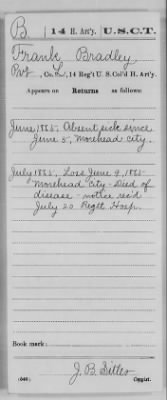 B | 14 H. Art'y. | U.S.C.T.
Frank Bradley
Pvt, Co. L, 14 Reg't U. S. Col'd H. Art'y.
Appears on Returns as follows:
June 1865. Absent sick since
June 5, Morehead City.
July 1865, Loss June 9, 1865
Morehead City - Died of
disease - notice rec'd
July 20 Regtl Hosp.
Book mark:
(546)
J. B. Sitler
Copyist.